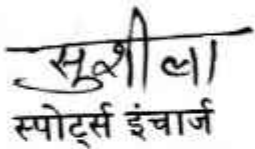 सुशीला
स्पोर्ट्स इंचार्ज